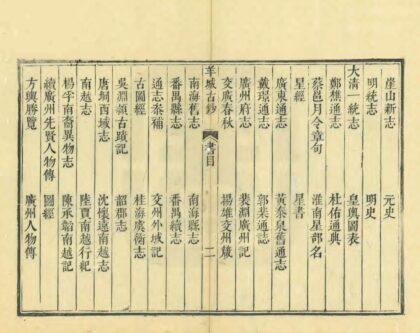 崖山新志 元史
明統志 明史
大清一統志 皇輿圖表
鄭樵通志 杜佑通典
蔡邕月令章句 淮南星部名
星經 星書
廣東通志 黃泰泉舊通志
戴璟通志 郭棐通志
廣州府志 裴淵廣州記
交廣春秋 揚雄交州箴
羊城古鈔 書目 二
南海舊志 南海縣志
番禺縣志 番禺續志
通志 稿 交州外域記
古圖經 桂海虞衡志
吳淵頴古蹟記 韶郡志
唐 西域志 沈懷遠南越志
南越志 陸賈南越行紀
楊孚南裔異物志 陳承韜南越記
續廣州先賢人物傳 圖經
方輿勝覽 廣州人物傳